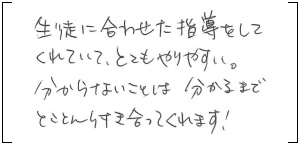 生徒に合わせた指導をして
くれていて、とてもやりやすい。
分からないことは 分かるまで
とことん付き合ってくれます!